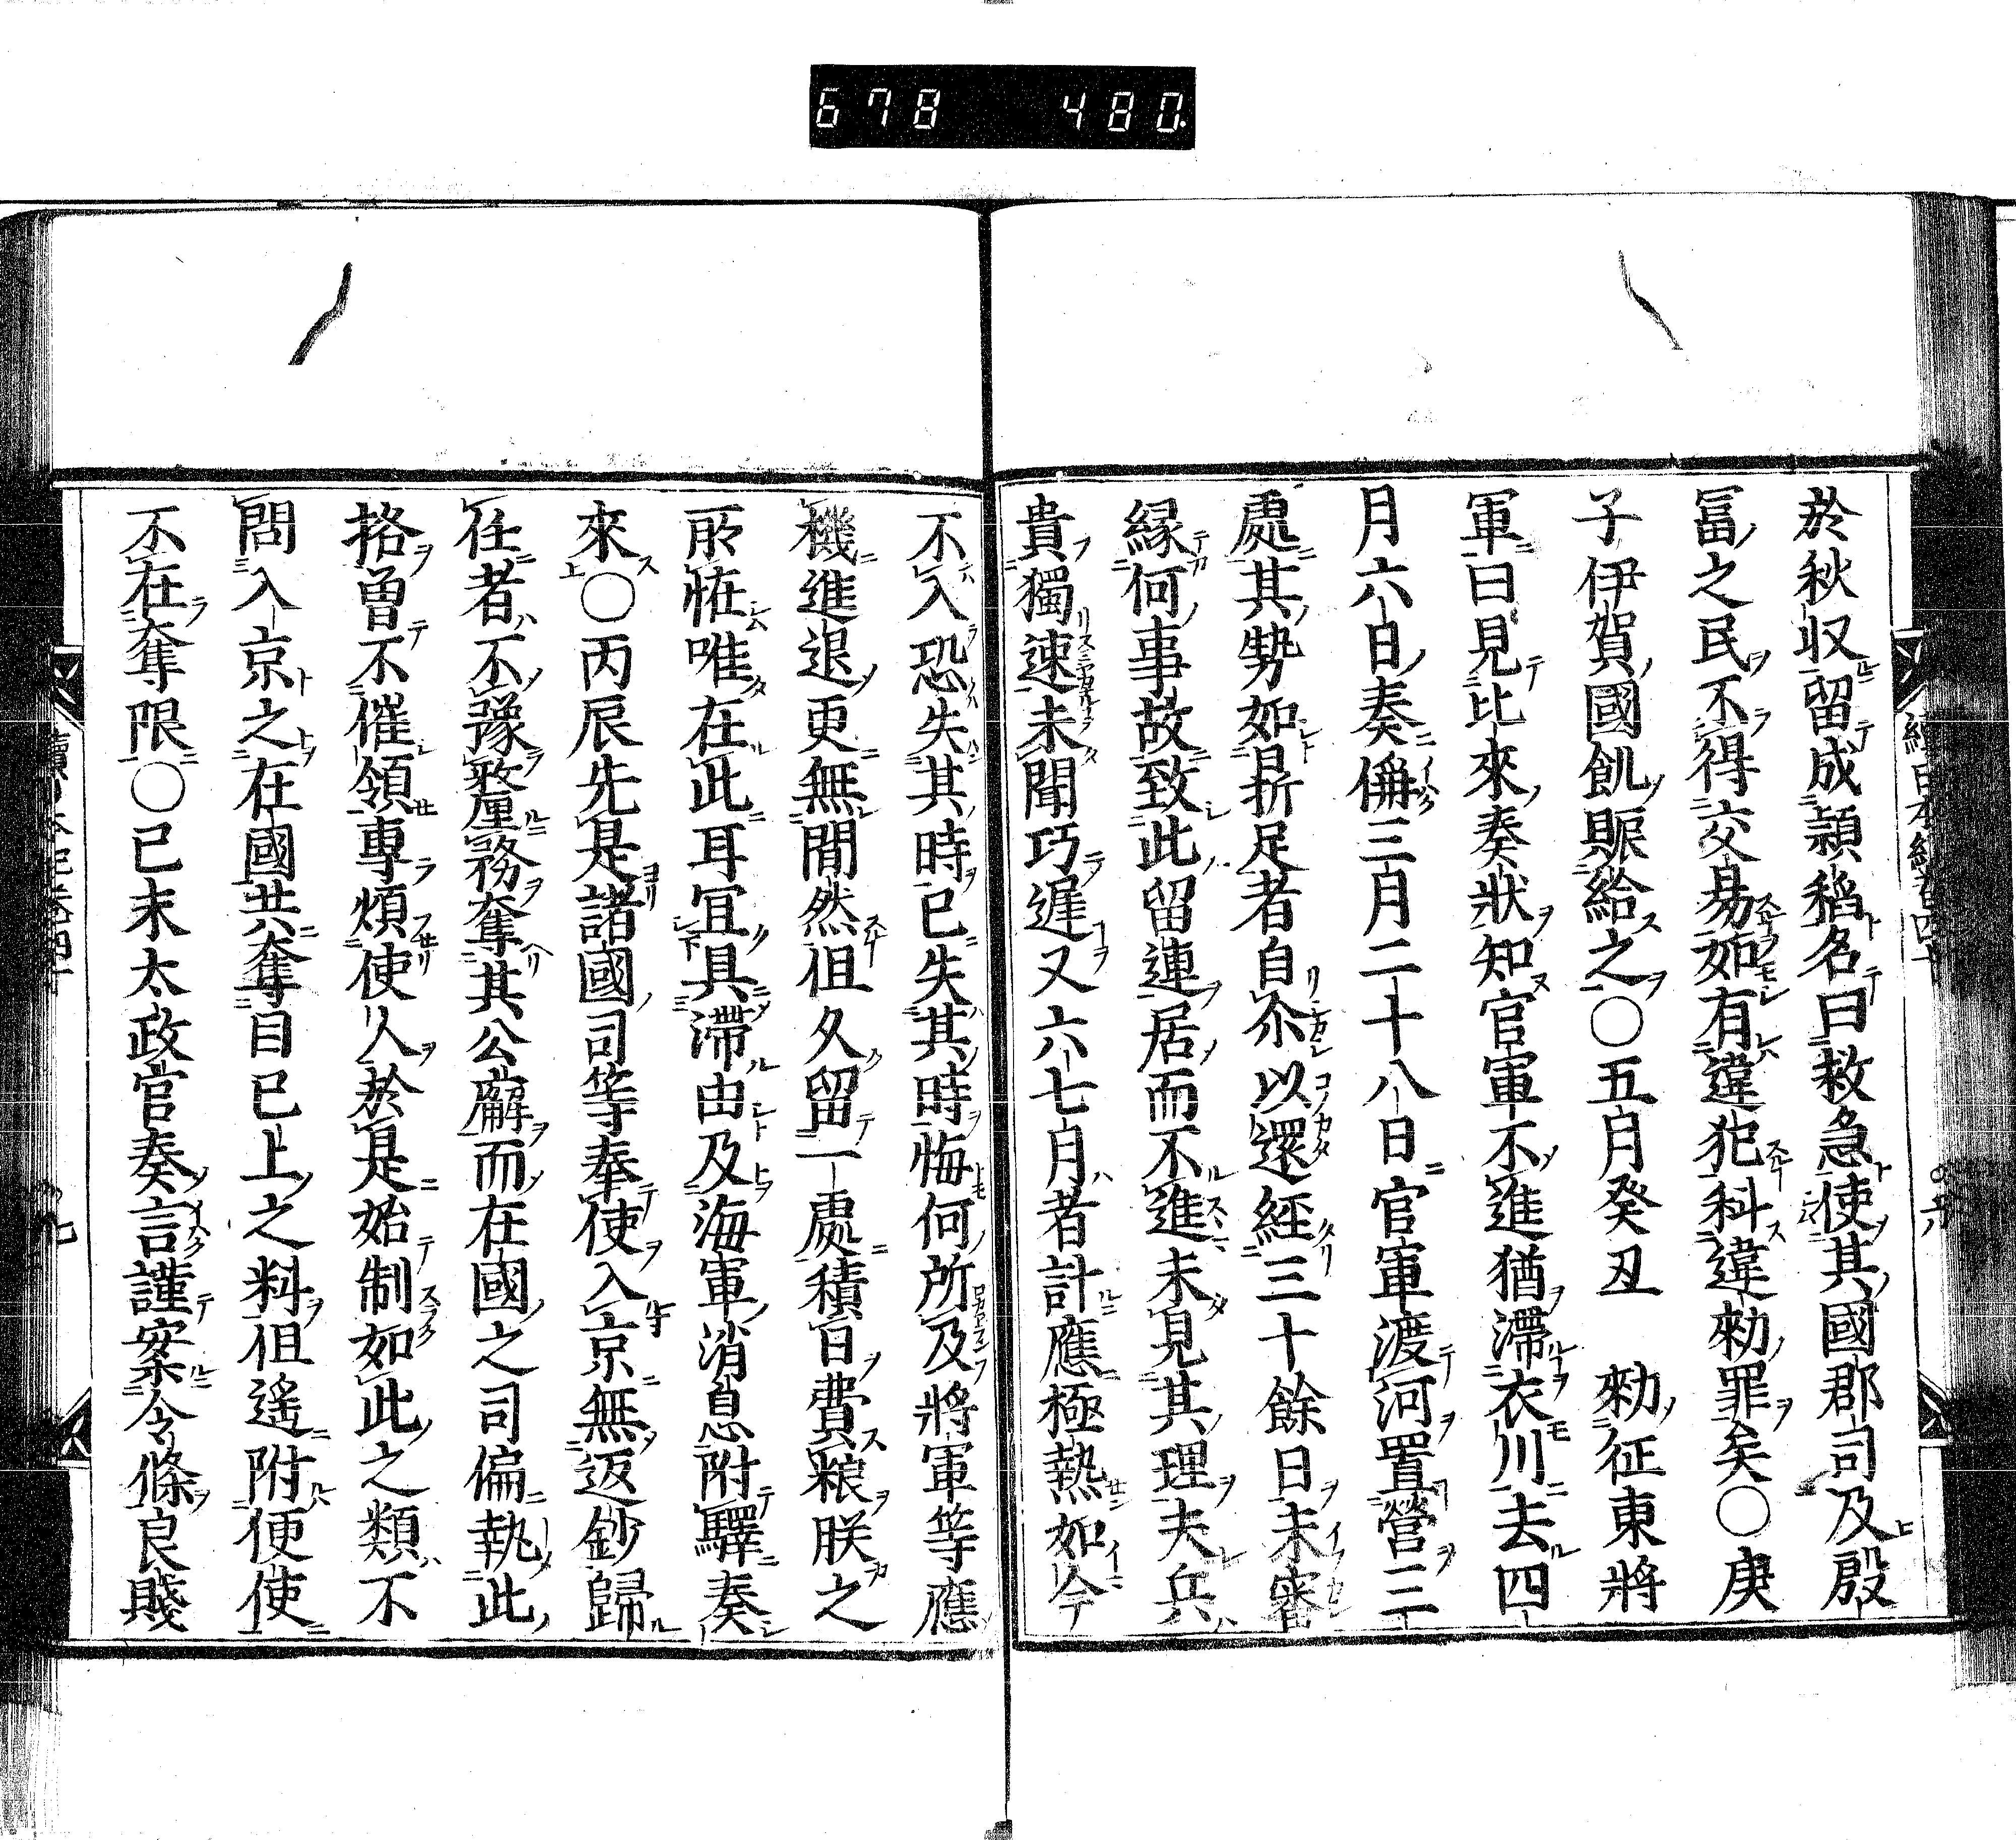 678 480
於秋収留成穎稻名曰救急使其國郡司及殷
冨之民不得交易如有違犯科違勑罪矣○庚
子伊賀國飢賑給之○五月癸丑 勑征東將
軍曰見比來奏狀知官軍不進猶滯衣川去四
月六日奏偁三月二十八日官軍渡河置營三
處其勢如㫷足者自尒以還經三十餘日未審
縁何事故致此留連居而不進未見其理夫兵
貴獨速未聞巧遲又六七月者計應極熱如今
不入恐失其時已失其時悔何所及將軍等應
機進退更無間然但久留一處積日費粮朕之
所恠唯在此耳冝具滯由及海軍消息附驛奏
來○丙辰先是諸國司等奉使入京無返鈔歸
任者不豫釐務奪其公廨而在國之司偏執此
挌曽不催領專煩使人於是始制如此之類不
問入京之在國共奪目已上之料但遙附便使
不在奪限○己未太政官奏言謹案令條良賤